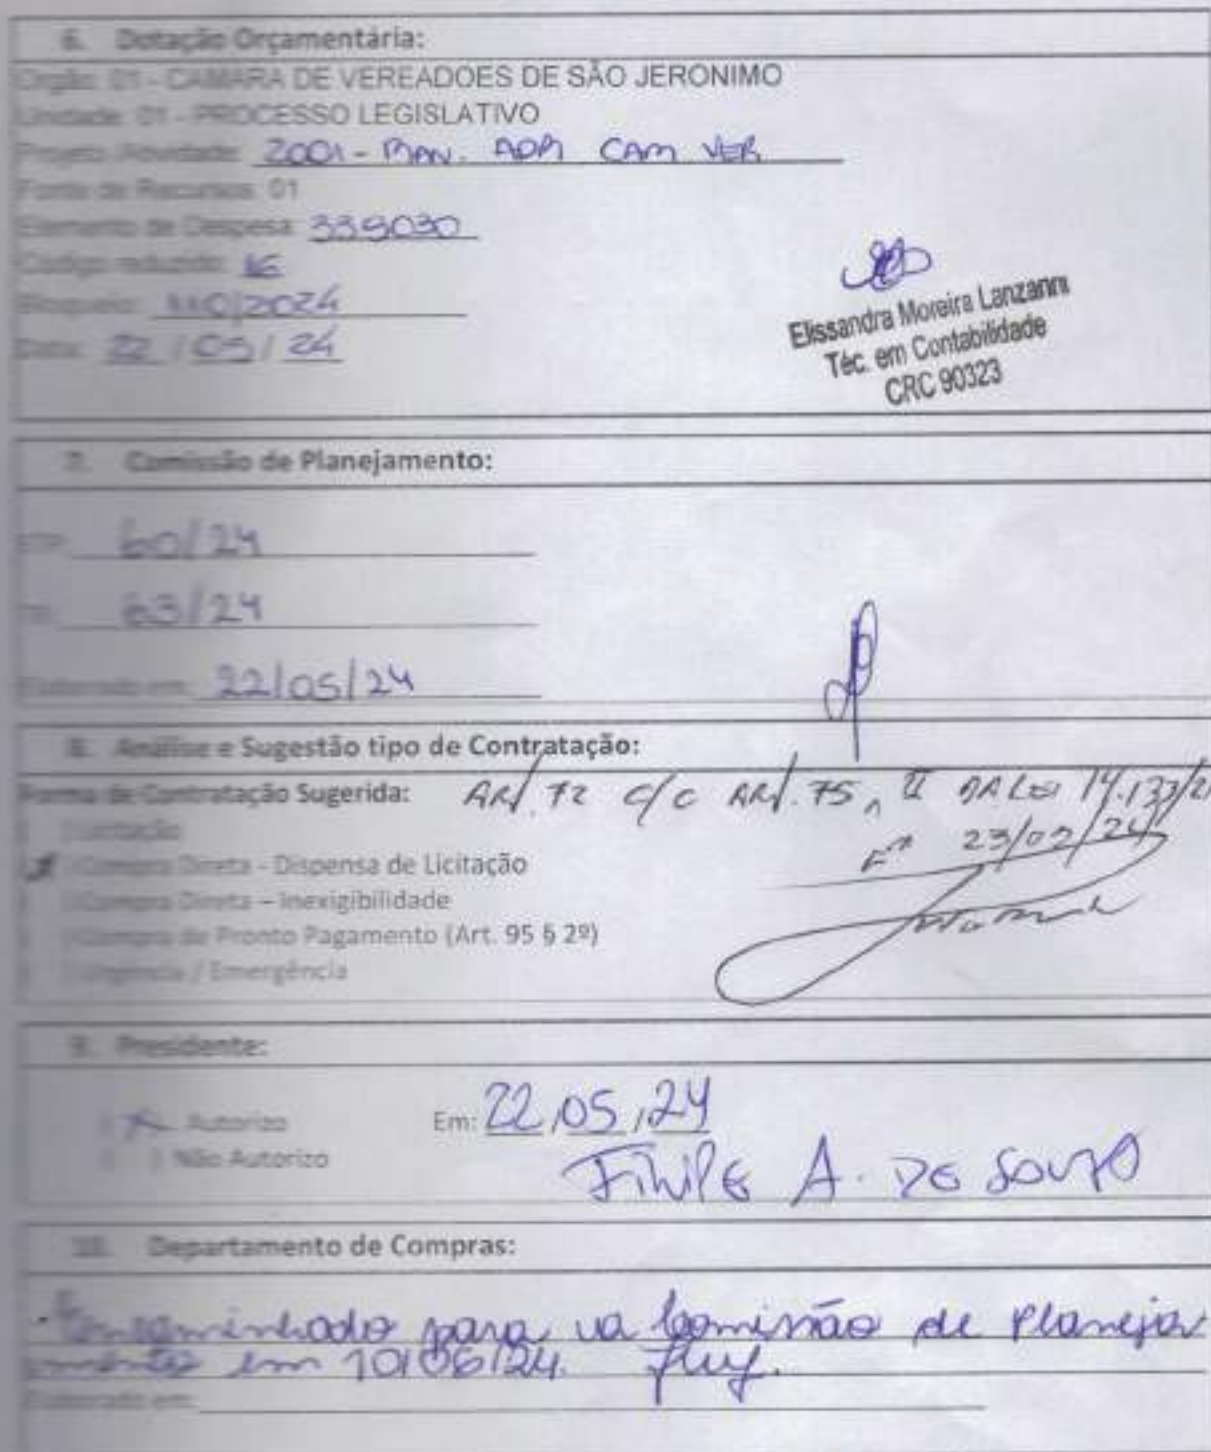 6. Dotação Orçamentária:
Orgão: 01 - CAMARA DE VEREADOES DE SÃO JERONIMO
Unidade: 01 - PROCESSO LEGISLATIVO
Projeto /Atividade: 2001 - MAN. ADM CAM VER
Fonte de Recursos: 01
Elemento de Despesa: 339030
Código reduzido: 16
Bloqueio: 110/2024
Data: 22 / 05 / 24
Elissandra Moreira Lanzanni
Téc. em Contabilidade
CRC 90323
7. Comissão de Planejamento:
60/24
63/24
Elaborado em: 22/05/24
8. Análise e Sugestão tipo de Contratação:
Forma de Contratação Sugerida: ART. 72 C/C ART. 75, II DA LEI 14.133/21
( ) Licitação
Em 23/02/24
(X) Compra Direta - Dispensa de Licitação
( ) Compra Direta – Inexigibilidade
( ) Compra de Pronto Pagamento (Art. 95 § 2º)
( ) Urgência / Emergência
9. Presidente:
(X) Autorizo Em: 22/05/24
( ) Não Autorizo
FILIPE A. DE SOUZA
10. Departamento de Compras:
Encaminhado para a Comissão de Planeja
mento em 10/06/24.
Elaborado em: